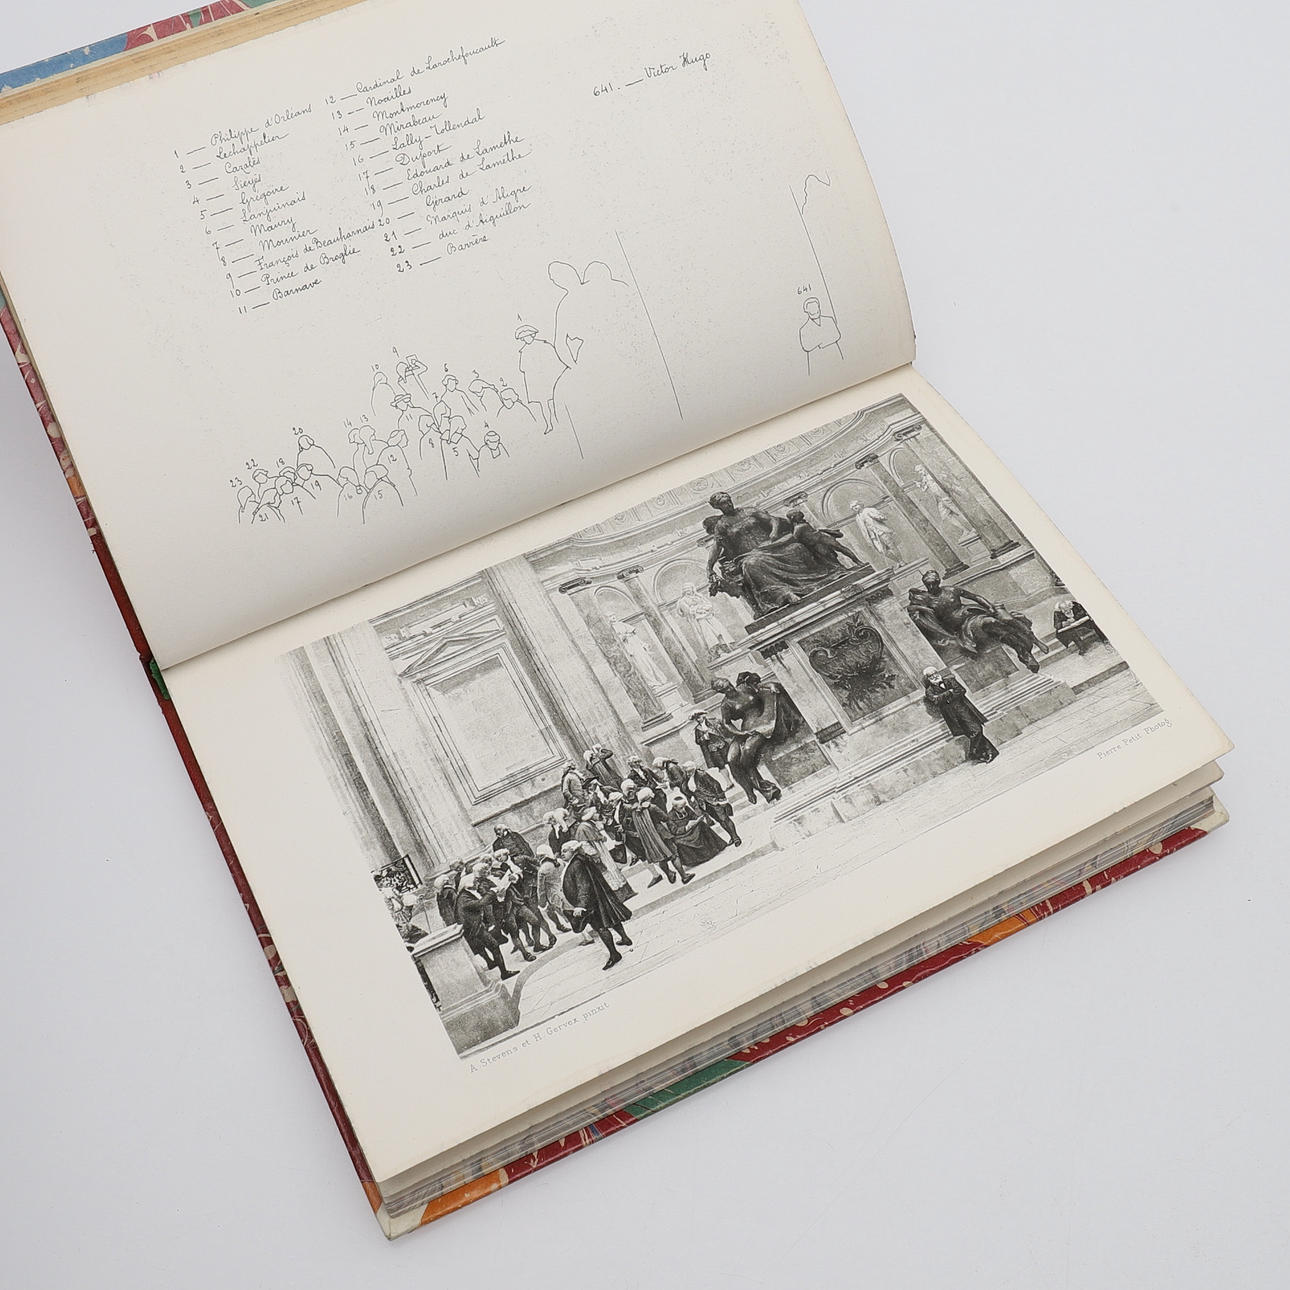 1 — Philippe d'Orléans
2 — Lechappelier
3 — Cazalès
4 — Sieyès
5 — Grégoire
6 — Lanjuinais
7 — Maury
8 — Mounier
9 — François de Beauharnais
10 — Prince de Broglie
11 — Barnave
12 — Cardinal de Larochefoucault
13 — Noailles
14 — Montmorency
15 — Mirabeau
16 — Lally-Tollendal
17 — Duport
18 — Edouard de Lamèthe
19 — Charles de Lamèthe
20 — Gérard
21 — Marquis d'Aligre
22 — duc d'Aiguillon
23 — Barrère
641. — Victor Hugo
641
1
9
10
6
3
2
7
11
14 13
20
8
5
4
22
18
12
23
19
16
15
21
17
A Stevens et H. Gervex pinxit
Pierre Petit Photog.